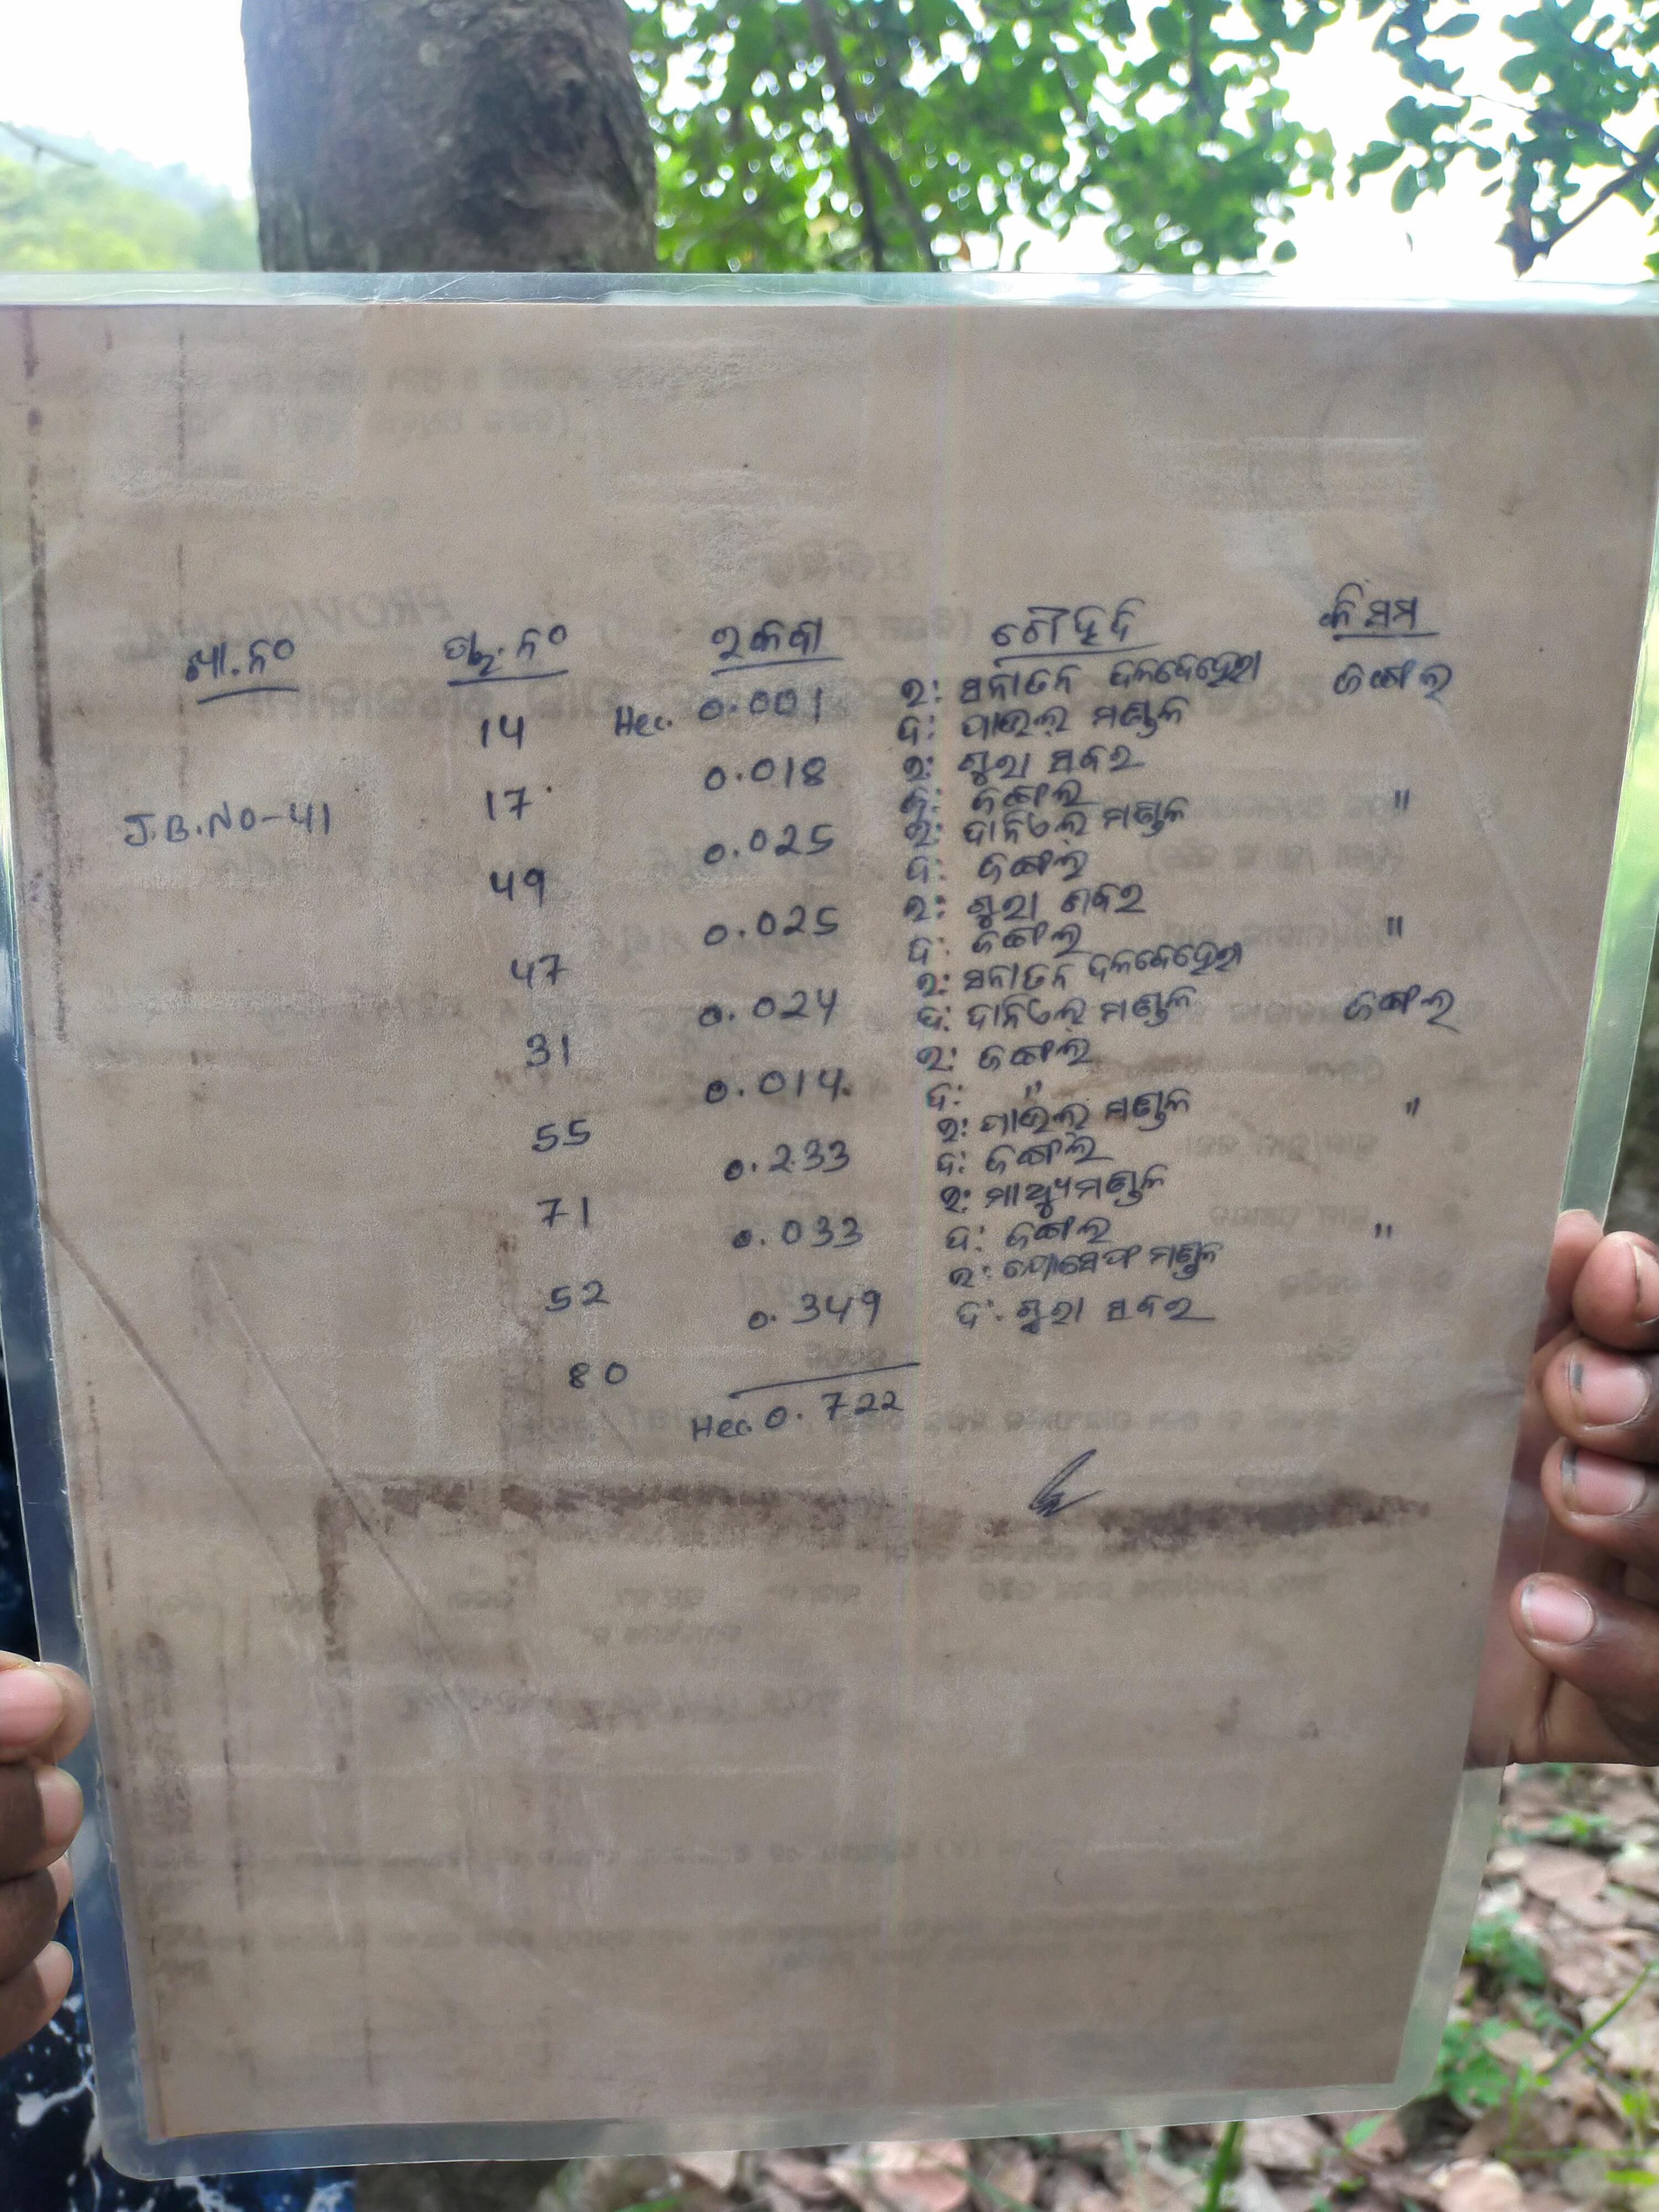 ଖା.ନଂ ପ୍ଲ.ନଂ ରକବା ଚୌହଦି କିସମ
14 Hec. 0.001 ଉ: ସନାତନ ଦଳବେହେରା ଜଙ୍ଗଲ
ଦ: ପାଉଲ ମଣ୍ଡଳ
J.B.No-41 17 0.018 ଉ: ଶୁରା ସବର
ଦ: ଜଙ୍ଗଲ "
49 0.025 ଉ: ଦାନିଏଲ ମଣ୍ଡଳ
ଦ: ଜଙ୍ଗଲ
47 0.025 ଉ: ଶୁରା ଶବର
ଦ: ଜଙ୍ଗଲ "
31 0.024 ଉ: ସନାତନ ଦଳବେହେରା
ଦ: ଦାନିଏଲ ମଣ୍ଡଳ ଜଙ୍ଗଲ
55 0.014 ଉ: ଜଙ୍ଗଲ
ଦ: "
71 0.233 ଉ: ପାଉଲ ମଣ୍ଡଳ "
ଦ: ଜଙ୍ଗଲ
52 0.033 ଉ: ମାଥ୍ୟୁ ମଣ୍ଡଳ
ଦ: ଜଙ୍ଗଲ "
80 0.349 ଉ: ଯୋସେଫ ମଣ୍ଡଳ
ଦ: ଶୁରା ସବର
Hec. 0.722